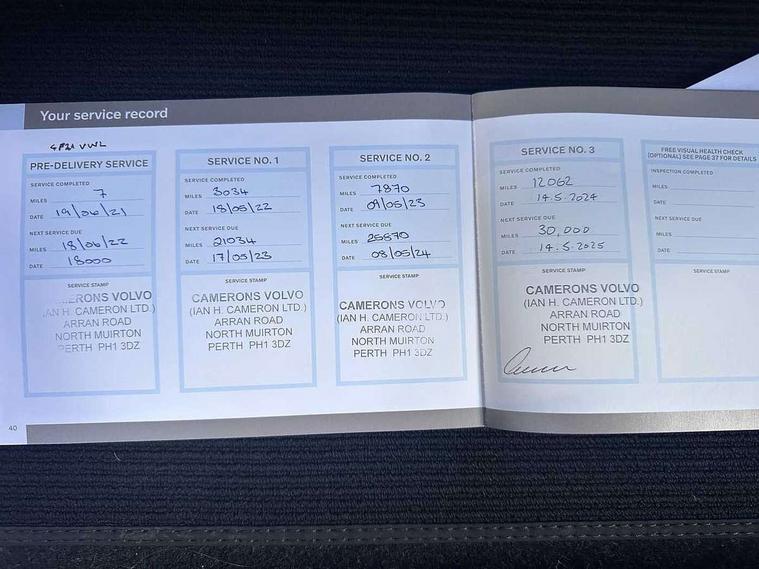 Your service record
SP21 VWL
PRE-DELIVERY SERVICE
SERVICE COMPLETED
MILES 7
DATE 19/06/21
NEXT SERVICE DUE
MILES 18/06/22
DATE 18000
SERVICE STAMP
CAMERONS VOLVO
(IAN H. CAMERON LTD.)
ARRAN ROAD
NORTH MUIRTON
PERTH PH1 3DZ
SERVICE NO. 1
SERVICE COMPLETED
MILES 3034
DATE 18/05/22
NEXT SERVICE DUE
MILES 21034
DATE 17/05/23
SERVICE STAMP
CAMERONS VOLVO
(IAN H. CAMERON LTD.)
ARRAN ROAD
NORTH MUIRTON
PERTH PH1 3DZ
SERVICE NO. 2
SERVICE COMPLETED
MILES 7870
DATE 09/05/23
NEXT SERVICE DUE
MILES 25870
DATE 08/05/24
SERVICE STAMP
CAMERONS VOLVO
(IAN H. CAMERON LTD.)
ARRAN ROAD
NORTH MUIRTON
PERTH PH1 3DZ
SERVICE NO. 3
SERVICE COMPLETED
MILES 12062
DATE 14.5.2024
NEXT SERVICE DUE
MILES 30,000
DATE 14.5.2025
SERVICE STAMP
CAMERONS VOLVO
(IAN H. CAMERON LTD.)
ARRAN ROAD
NORTH MUIRTON
PERTH PH1 3DZ
FREE VISUAL HEALTH CHECK
(OPTIONAL) SEE PAGE 37 FOR DETAILS
INSPECTION COMPLETED
MILES
DATE
NEXT SERVICE DUE
MILES
DATE
SERVICE STAMP
40